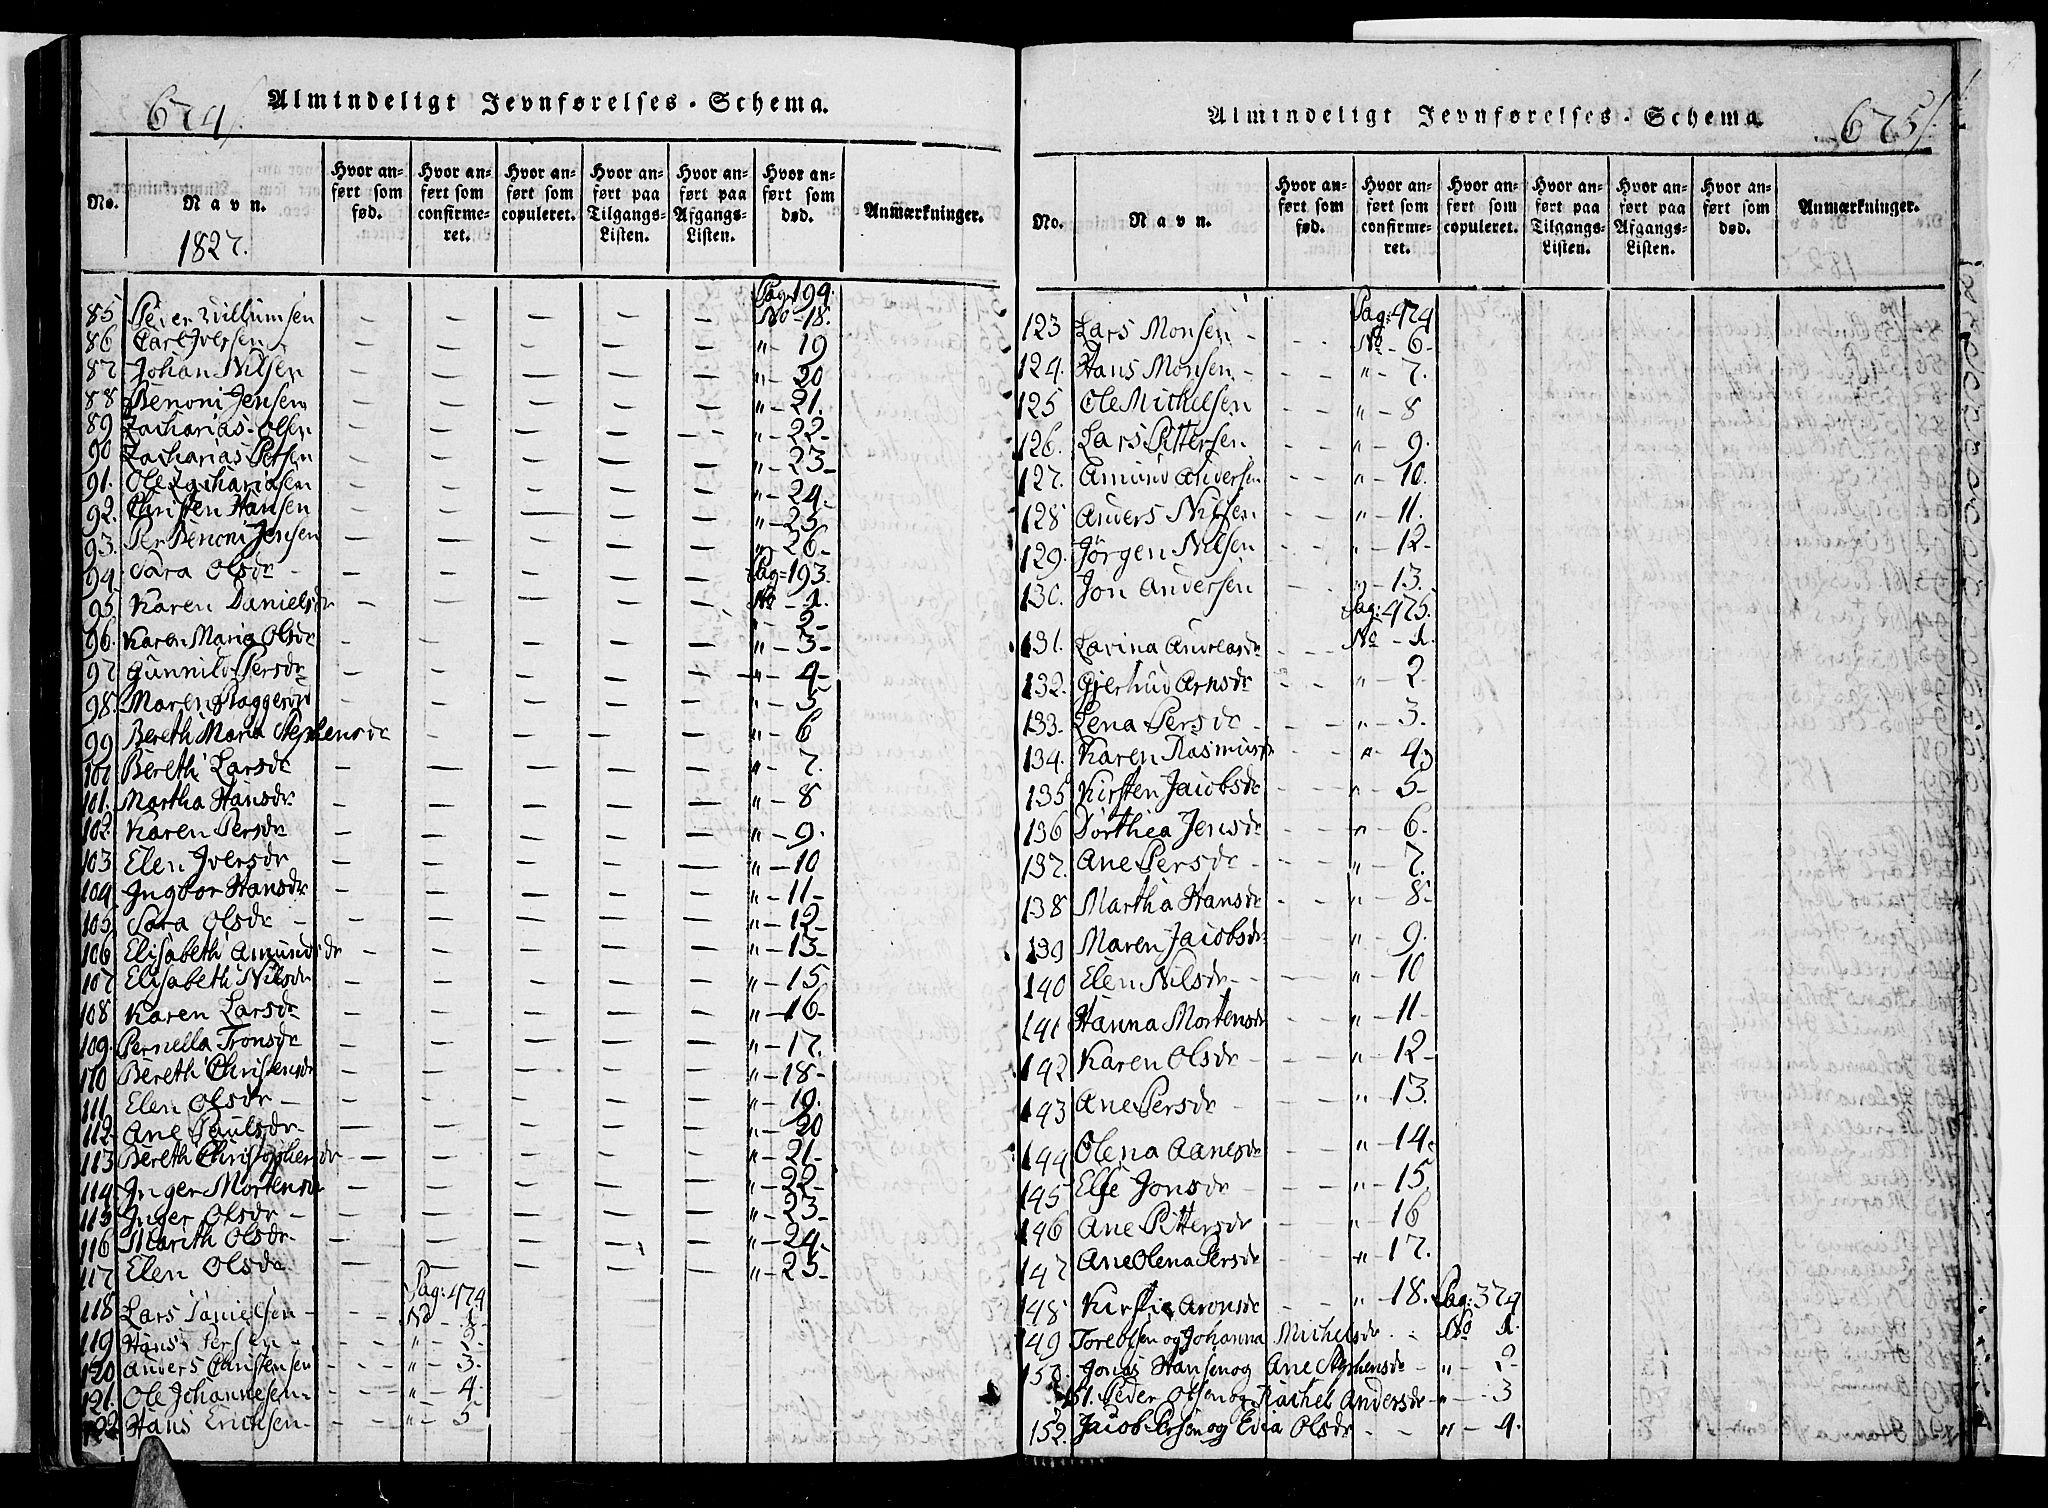 674/. Almindeligt Jevnførelses-Schema.
No. Navn. 1827. Hvor anført som fød. Hvor anført som confirmeret. Hvor anført som copuleret. Hvor anført paa Tilgangs-Listen. Hvor anført paa Afgangs-Listen. Hvor anført som død. Anmærkninger.
Pag: 194.
85 Peder Villumsen – – – – – No – 18.
86 Carl Iversen – – – – – " – 19
87 Johan Nilsen – – – – – " – 20
88 Benoni Jensen – – – – – " – 21.
89 Zacharias Olsen – – – – – " – 22 –
90 Zacharias Petsen – – – – – " – 23 –
91. Ole Zachariasen – – – – – " – 24.
92. Christen Hansen – – – – – " – 25.
93. Per Benoni Jensen – – – – – " – 26 –
Pag: 193.
94 Sara Olsdr – – – – – No – 1.
95 Karen Danielsdr – – – – – " – 2 –
96. Karen Maria Olsdr – – – – – " – 3 –
97 Gunnild Persdr – – – – – " – 4 –
98. Maren – – – – – " – 5
99 Bereth Maria Stephensdr – – – – " – 6
100 Bereth Larsdr – – – – – " – 7.
101. Martha Hansdr – – – – – " – 8
102. Karen Persdr – – – – – " – 9.
103 Elen Iversdr – – – – – " – 10
104 Ingbor Hansdr – – – – – " – 11 –
105 Sara Olsdr – – – – – " – 12 –
106 Elisabeth Amundsdr – – – – – " – 13 –
107 Elisabeth Nilsdr – – – – – " – 15
108 Karen Larsdr – – – – – " – 16 –
109. Pernella Tronsdr – – – – – " – 17.
110 Bereth Christensdr – – – – – " – 18 –
111 Elen Olsdr – – – – – " – 19.
112. Ane Paulsdr – – – – – " – 20
113 Bereth Christophersdr – – – – – " – 21 –
114. Inger Mortensdr – – – – – " – 22 –
115 Inger Olsdr – – – – – " – 23 –
116 Marith Olsdr – – – – – " – 24 –
117 Elen Olsdr – – – – – " – 25 –
Pag: 474
118 Lars Danielsen – – – No – 1.
119 Hans Persen – – – " – 2 –
120 Anders Christensen – – – " – 3.
121. Ole Johannesen – – – " – 4.
122 Hans Erichsen – – – " – 5
Almindeligt Jevnførelses-Schema. 675/.
No. Navn. Hvor anført som fød. Hvor anført som confirmeret. Hvor anført som copuleret. Hvor anført paa Tilgangs-Listen. Hvor anført paa Afgangs-Listen. Hvor anført som død. Anmærkninger.
Pag: 474
123 Lars Monsen – – – No – 6 –
124. Hans Monsen – – – " – 7.
125 Ole Michelsen – – " – 8
126. Lars Pittersen – – " – 9.
127. Amund Andersen – – " – 10.
128 Anders Nilsen – – " – 11.
129. Jörgen Nilsen – – " – 12 –
130. Jon Andersen – – " – 13.
Pag: 475.
131. Lavina Andreasdr – – No – 1.
132. Gjertrud Arnsdr – – " – 2
133. Lena Persdr – – – " – 3.
134. Karen Rasmusdr – – " – 4
135 Kirsten Jacobsdr – – " – 5 –
136 Dorthea Jensdr – – " – 6.
137. Ane Persdr – – – " – 7.
138 Martha Hansdr – – " – 8 –
139 Maren Jacobsdr – – " – 9.
140 Elen Nilsdr – – – " – 10
141 Hanna Mortensdr – – " – 11 –
142 Karen Olsdr – – – " – 12 –
143 Ane Persdr – – – " – 13.
144 Olena Aanesdr – – " – 14.
145 Else Jonsdr – – – " – 15.
146 Ane Pittersdr – – " – 16
147 Ane Olena Persdr – – " – 17.
148 Kirstie Aronsdr – – " – 18. Pag: 374
149 Tore Olsen og Johanna Michelsdr – – No 1.
150. Jonas Hansen og Ane Stephensdr – " – 2 –
151. Peder Olsen og Rachel Andersdr – " – 3
152. Jacob Persen og Edia Olsdr – – " – 4.